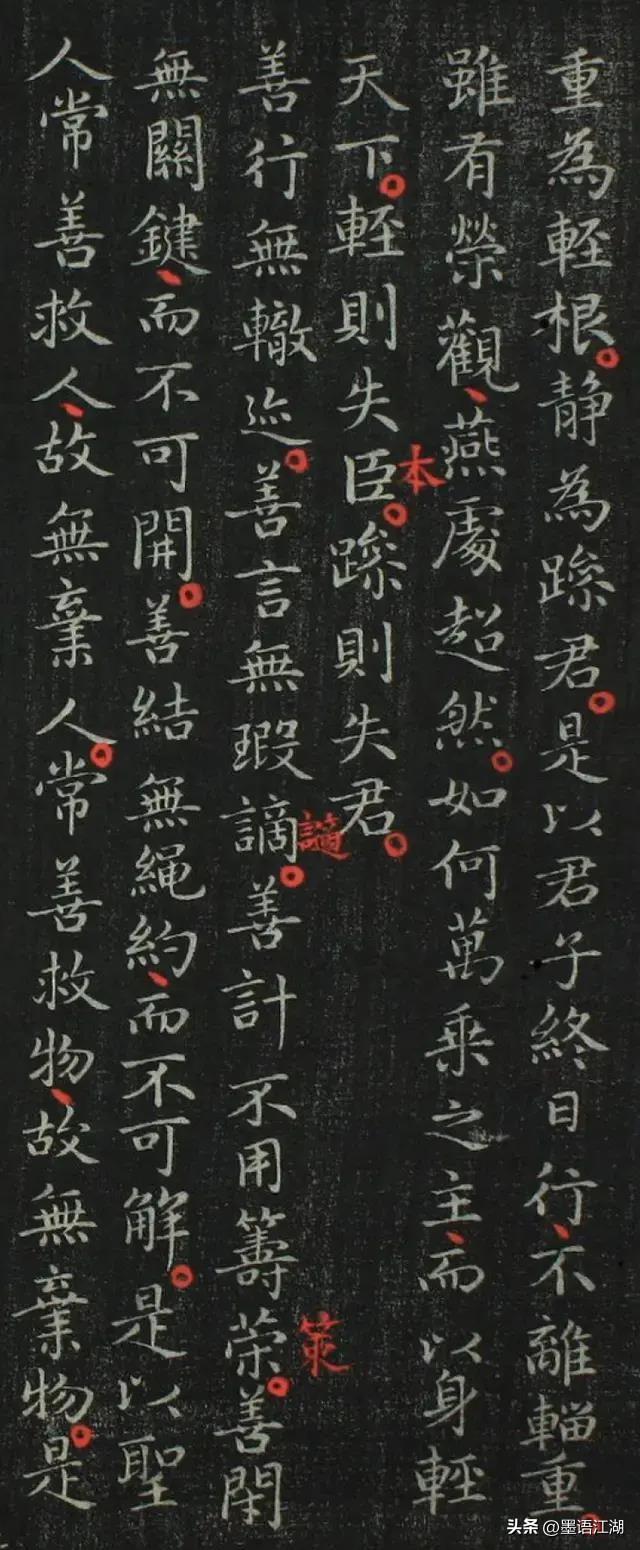 重為軽根。静為踈君。是以君子終日行、不離輜重。
雖有榮觀、燕處超然。如何萬乘之主、而以身軽
天下。軽則失臣。踈則失君。
本
善行無轍迹。善言無瑕謫。善計不用籌荣。善閇
讁
筞
無關鍵、而不可開。善結無繩約、而不可解。是以聖
人常善救人、故無棄人。常善救物、故無棄物。是
头条 @墨语江湖